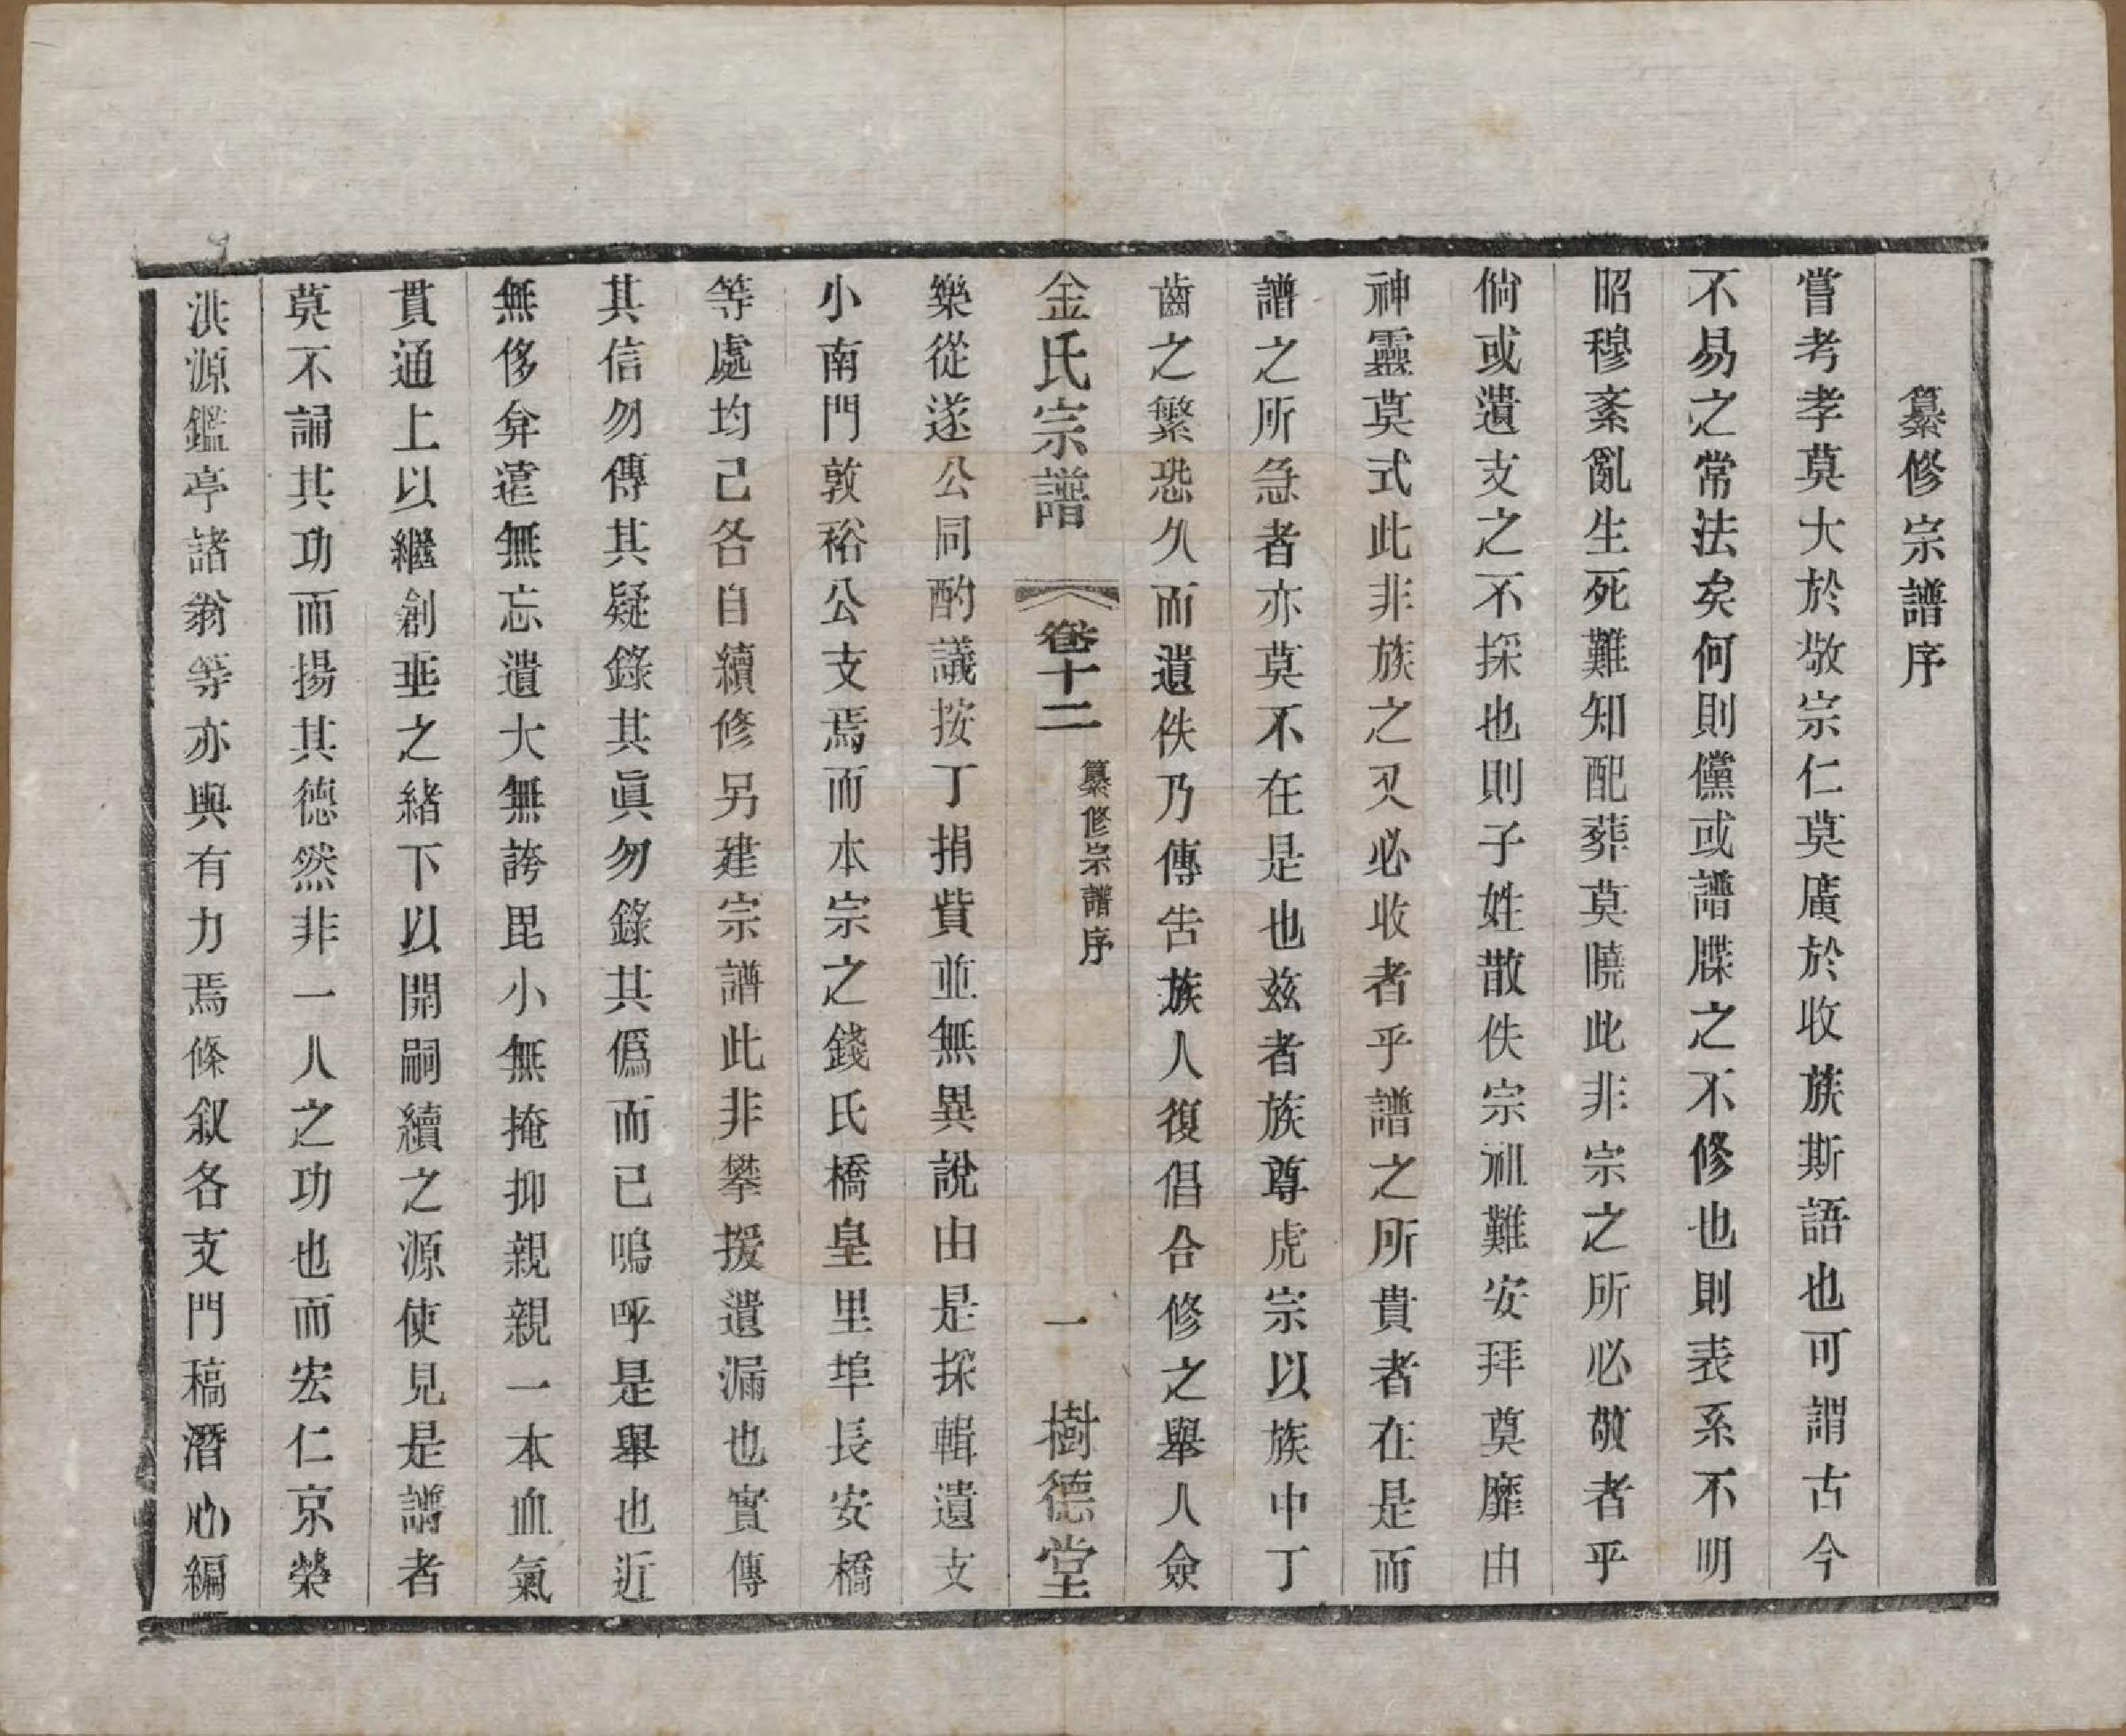 纂修宗譜序
嘗考孝莫大於敬宗仁莫廣於收族斯語也可謂古今
不易之常法矣何則儻或譜牒之不修也則表系不明
昭穆紊亂生死難知配葬莫曉此非宗之所必敬者乎
倘或遺支之不採也則子姓散佚宗祖難安拜奠靡由
神靈莫式此非族之又必收者乎譜之所貴者在是而
譜之所急者亦莫不在是也兹者族尊虎宗以族中丁
齒之繁恐久而遺佚乃傳告族人復倡合修之舉人僉
金氏宗譜 卷十二 纂修宗譜序 一 樹德堂
樂從遂公同酌議按丁捐貲並無異說由是採輯遺支
小南門敦裕公支焉而本宗之錢氏橋皇里埠長安橋
等處均己各自續修另建宗譜此非攀援遺漏也實傳
其信勿傳其疑錄其眞勿錄其僞而已嗚呼是舉也近
無侈弁遠無忘遺大無誇毘小無掩抑親親一本血氣
貫通上以繼創垂之緒下以開嗣續之源使見是譜者
莫不誦其功而揚其德然非一人之功也而宏仁京榮
洪源鑑亭諸翁等亦與有力焉條叙各支門稿潛心編